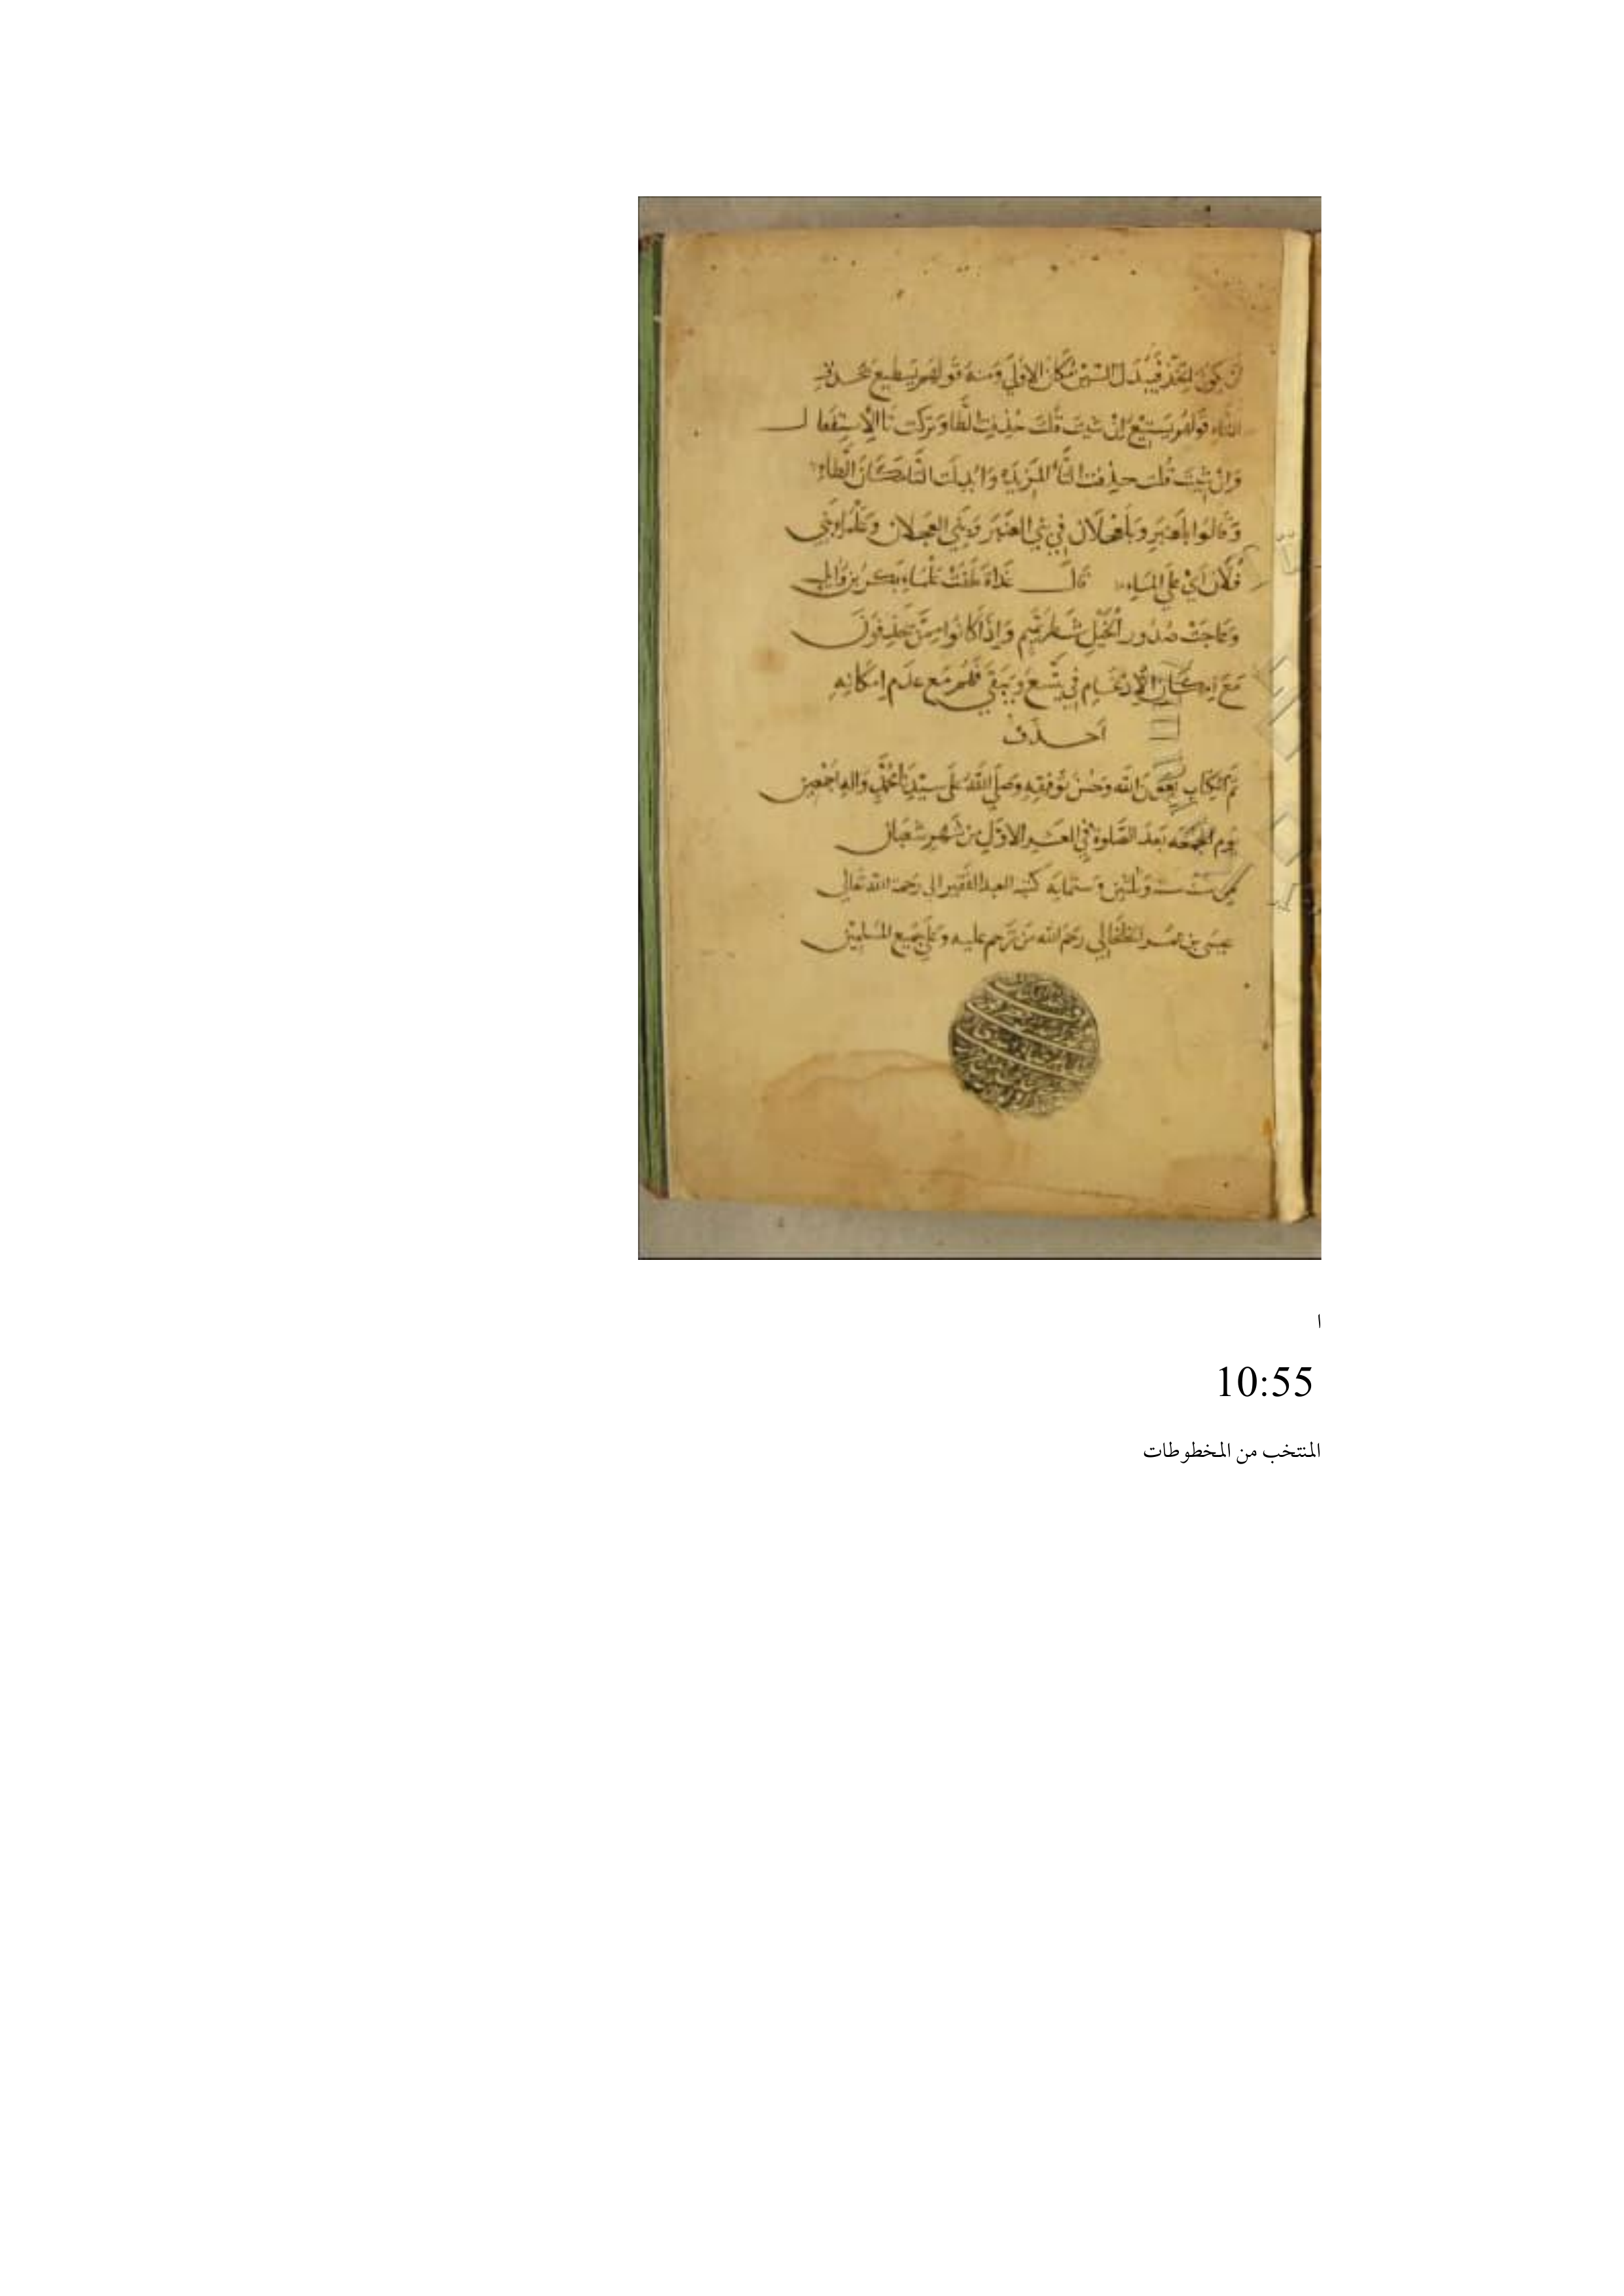 ان يكون اتخذ فيبدل السين مكان الاولى ومنه قولهم يسطيع بحذف
التاء وقولهم يستيع ان شيت قلت حذفت الطا وتركت تا الاستفعال
وان شيت قلت حذفت التا المزيده وابدلت التا مكان الطاء
وقالوا بلعنبر وبلعجلان في بني العنبر وبني العجلان وعلماء بني
فلان اي على الماء قال غداة طفت علماء بكر بن وايل
وعاجت صدور الخيل شطر تميم واذا كانوا ممن يحذفون
مع امكان الادغام في يتسع ويتقي فهم مع عدم امكانه
احذف
تم الكتاب بعون الله وحسن توفيقه وصلى الله على سيدنا محمد واله اجمعين
يوم الجمعه بعد الصلوة في العشر الاول من شهر شعبان
ست وثلثين وستمايه كتبه العبد الفقير الى رحمة الله تعالى
عيسى بن عمر الخلخالي رحم الله من ترحم عليه وعلى جميع المسلمين
ا
10:55
المنتخب من المخطوطات